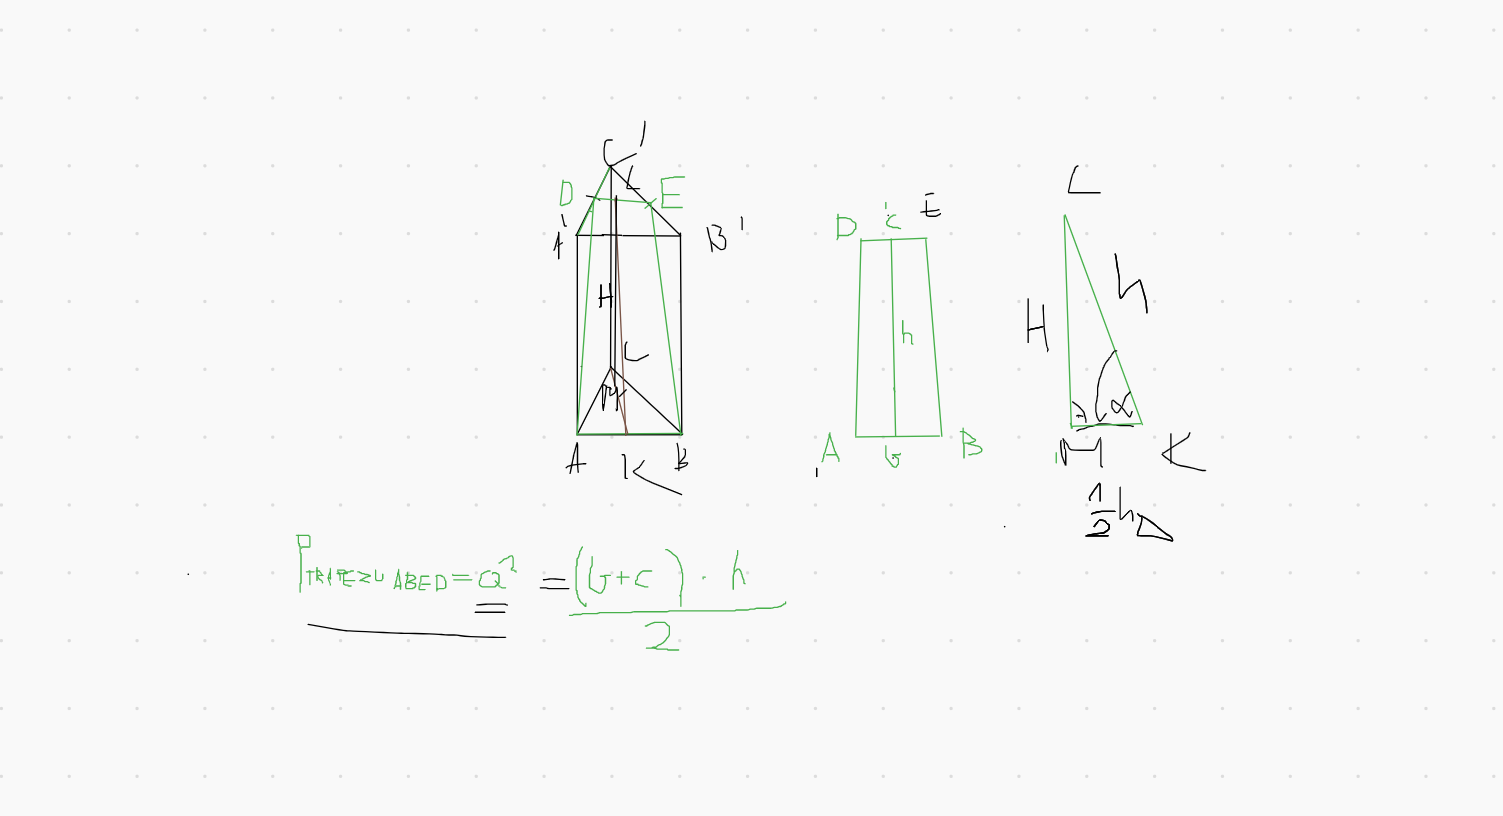 C'
L
D E
A' B'
H
C
M
A K B
D c E
h
A b B
L
H h
α
M K
1/2 h△
P TRAPEZU ABED = Q² = (b+c) · h / 2